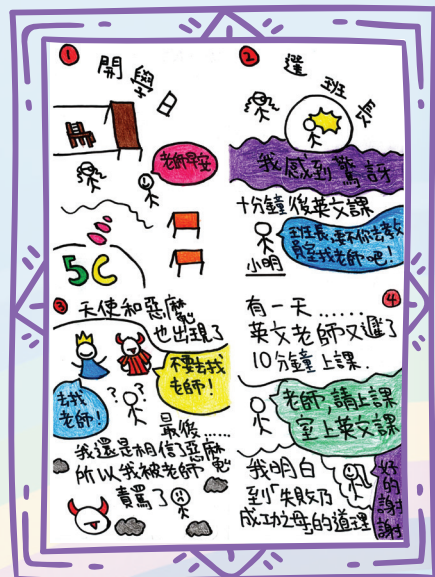 1
開學日
老師早安
5C
2
選班長
我感到驚訝
十分鐘後英文課
小明
班長,要不你去教
員室找老師吧!
3
天使和惡魔
也出現了
不要去找
老師!
去找
老師!
? ?
最後……
我還是相信惡魔
所以我被老師
責罵了
4
有一天……
英文老師又遲了
10分鐘上課.
老師,請上課
室上英文課
好的謝謝
我明白
到「失敗乃
成功之母」的道理